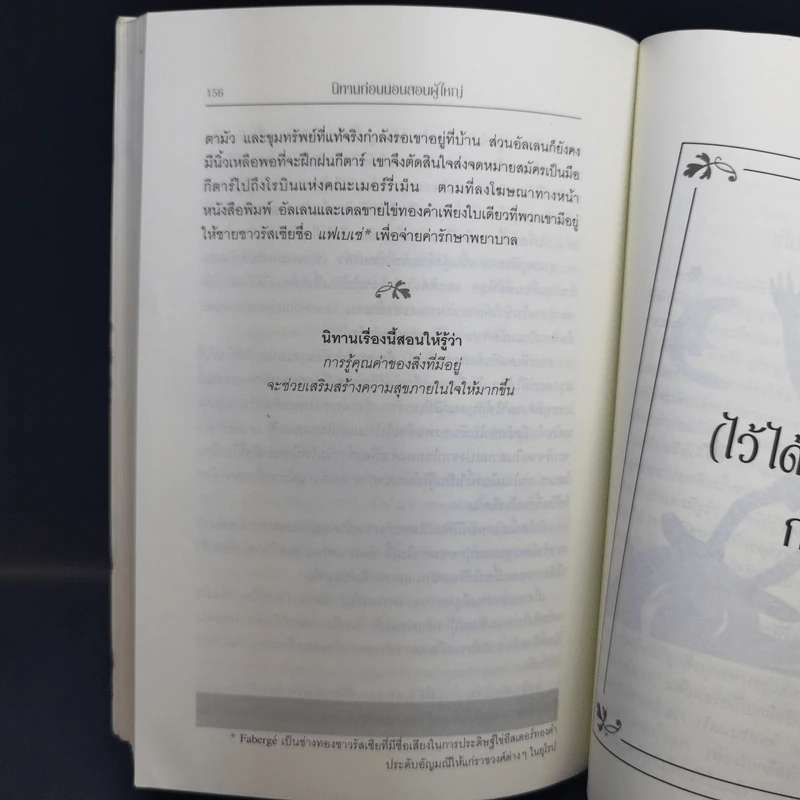 156
นิทานก่อนนอนสอนผู้ใหญ่
ตามัว และขุมทรัพย์ที่แท้จริงกำลังรอเขาอยู่ที่บ้าน ส่วนอัลเลนก็ยังคง
มีนิ้วเหลือพอที่จะฝึกฝนกีตาร์ เขาจึงตัดสินใจส่งจดหมายสมัครเป็นมือ
กีตาร์ไปถึงโรบินแห่งคณะเมอร์รี่เม็น ตามที่ลงโฆษณาทางหน้า
หนังสือพิมพ์ อัลเลนและเดลขายไข่ทองคำเพียงใบเดียวที่พวกเขามีอยู่
ให้ชายชาวรัสเซียชื่อ แฟเบเช่* เพื่อจ่ายค่ารักษาพยาบาล
นิทานเรื่องนี้สอนให้รู้ว่า
การรู้คุณค่าของสิ่งที่มีอยู่
จะช่วยเสริมสร้างความสุขภายในใจให้มากขึ้น
* Fabergé เป็นช่างทองชาวรัสเซียที่มีชื่อเสียงในการประดิษฐ์ไข่อีสเตอร์ทองคำ
ประดับอัญมณีให้แก่ราชวงศ์ต่าง ๆ ในยุโรป
(ไว้ได้